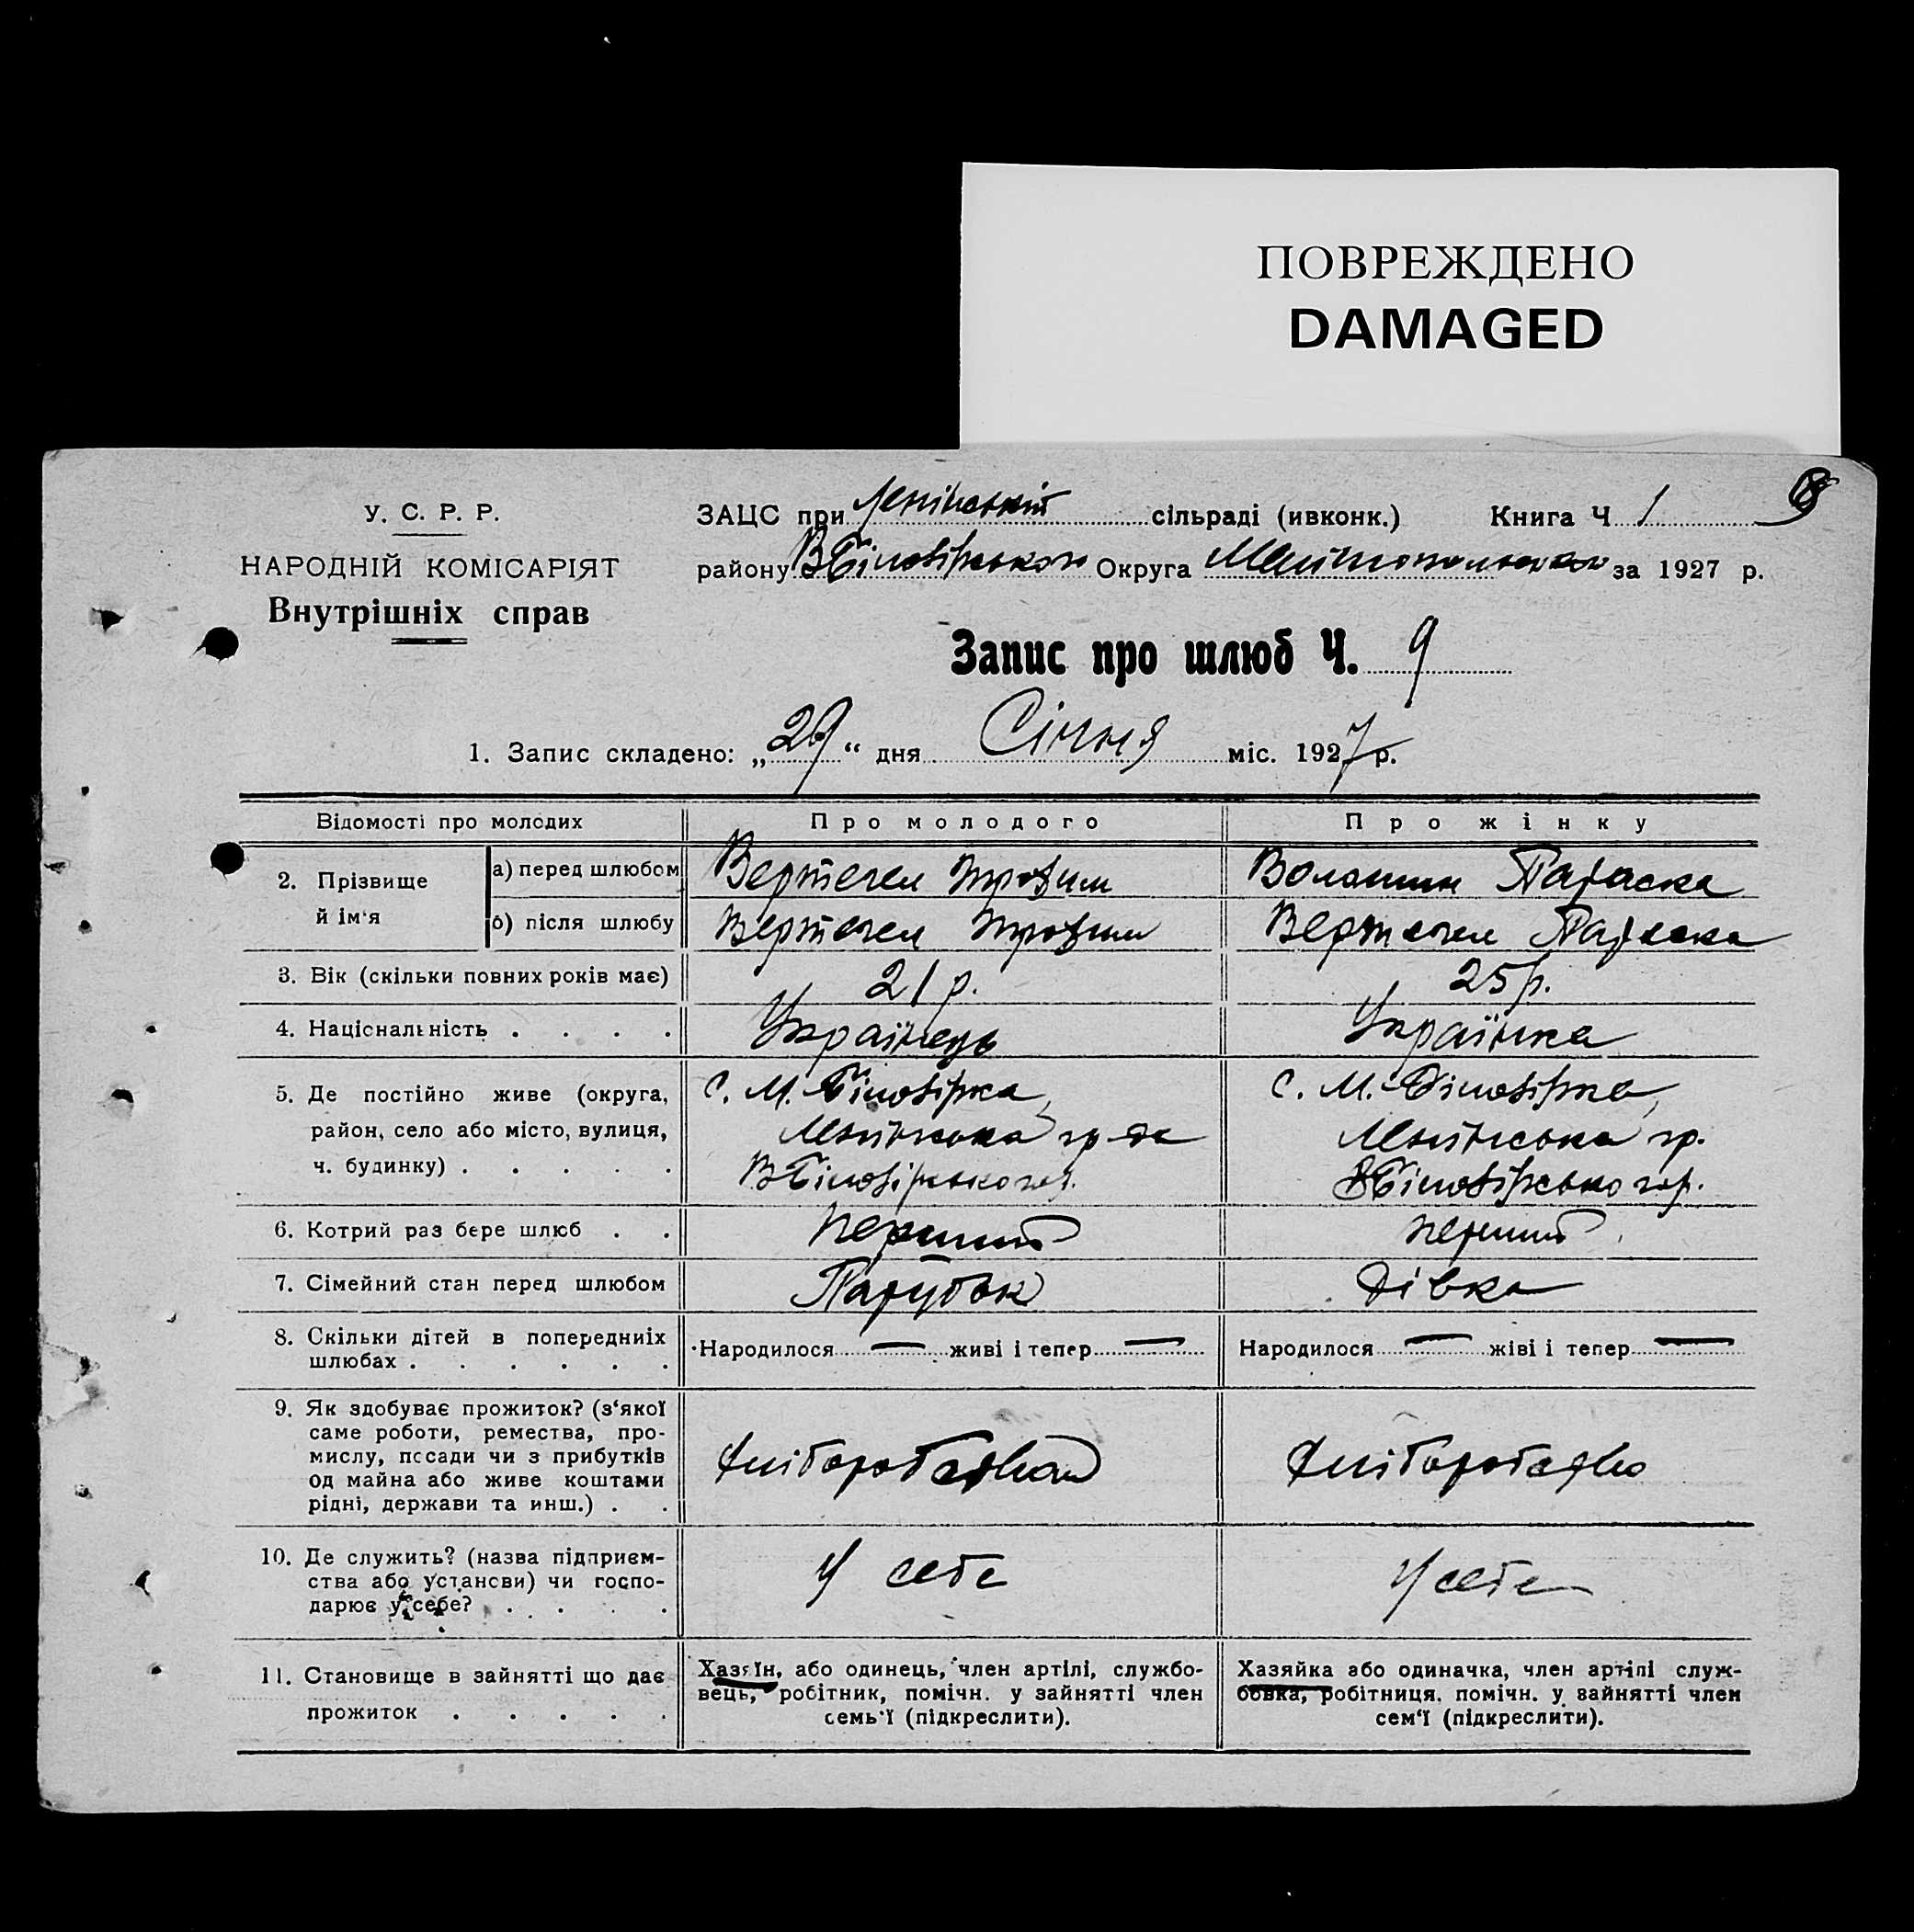 ПОВРЕЖДЕНО
DAMAGED
У. С. Р. Р.
НАРОДНІЙ КОМІСАРІЯТ
Внутрішніх справ
ЗАЦС при Ленінській сільраді (ивконк.) Книга Ч 1
району ВБілозірського Округа Мелітопольськ за 1927 р.
Запис про шлюб Ч. 9
1. Запис складено: „29“ дня Січня міс. 1927 р.
Відомості про молодих Про молодого Про жінку
2. Прізвище й ім‘я
а) перед шлюбом Вертегел Трофим Волошин Параска
б) після шлюбу Вертегел Трофим Вертегел Параска
3. Вік (скільки повних років має) 21 р. 25 р.
4. Національність . . . . Українець Українка
5. Де постійно живе (округа,
район, село або місто, вулиця,
ч. будинку) . . . . .
С. М. Білозірка,
Ленінська
ВБілозірського
С. М. Білозірка,
Ленінська гр.
ВБілозірського р.
6. Котрий раз бере шлюб . . Перший перший
7. Сімейний стан перед шлюбом Парубок Дівка
8. Скільки дітей в попередниіх
шлюбах . . . . . .
Народилося — живі і тепер — Народилося — жіві і тепер —
9. Як здобуває прожиток? (з‘якої
саме роботи, ремества, про-
мислу, посади чи з прибутків
од майна або живе коштами
рідні, держави та инш.) . .
Хліборобством Хліборобство
10. Де служить? (назва підприєм-
ства або установи) чи госпо-
дарює у себе? . . . .
У себе У себе
11. Становище в зайнятті що дає
прожиток . . . . .
Хазяїн, або одинець, член артілі, службо-
вець, робітник, помічн. у зайнятті член
семь‘ї (підкреслити).
Хазяйка або одиначка, член артілі служ-
бовка, робітниця, помічн. у зайнятті член
сем‘ї (підкреслити).